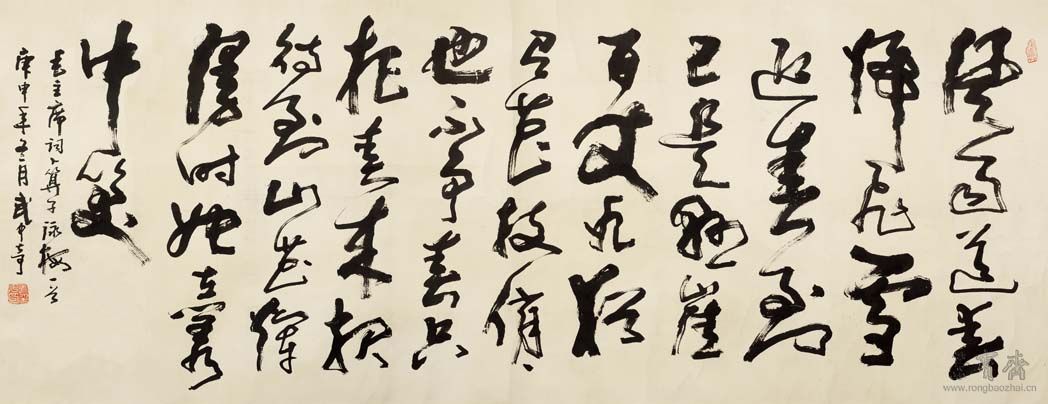 風雨送春
歸飛雪
迎春到
已是懸崖
百丈冰犹
有花枝俏〻
也不争春只
把春来报
待到山花烂
漫时她在叢
中笑
毛主席词卜算子咏梅一首
庚申年五月武中奇
www.rongbaozhai.cn